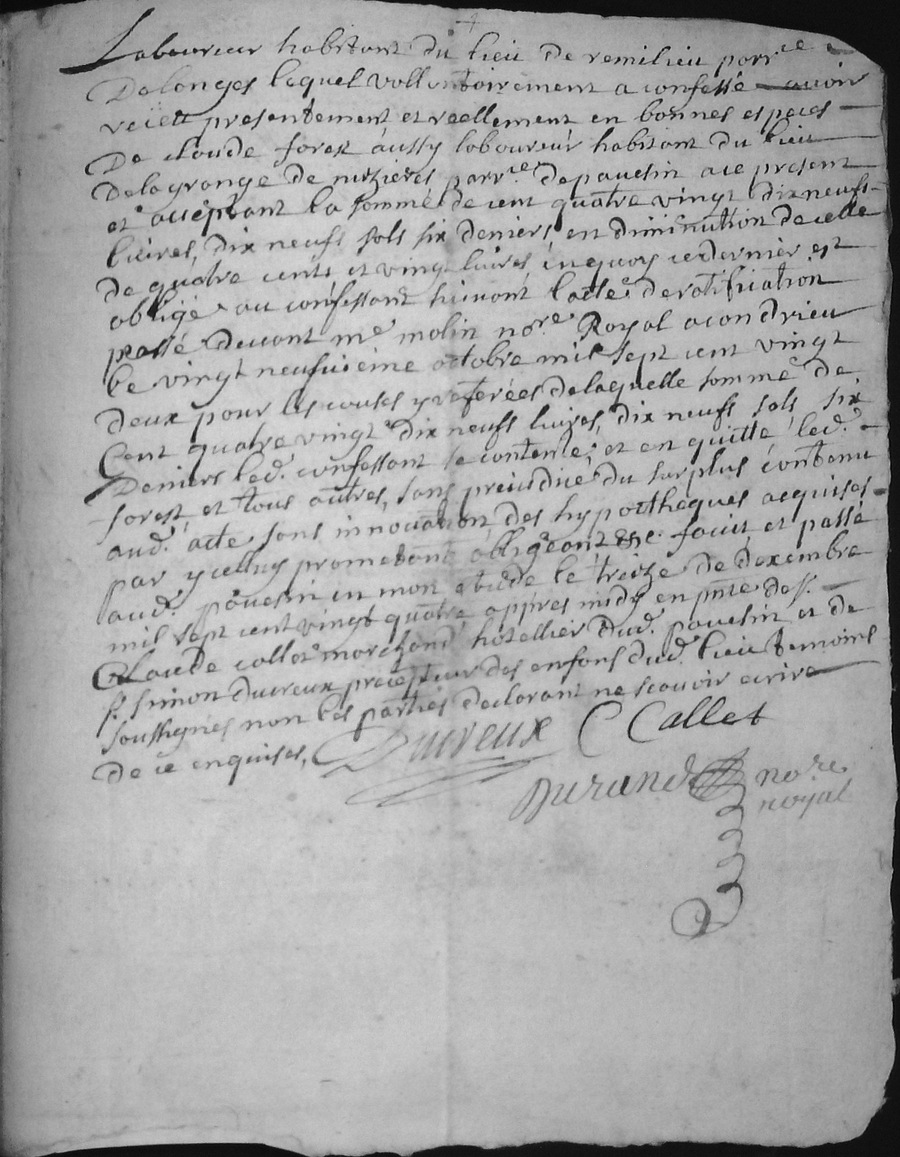 Laboureur habitant du lieu de remilieu parr.ce
Delonges lequel vollontoirement a confessé avoir
reieu presentement et réellement en bonnes especes
De claude forest aussy laboureur habitant du lieu
Delagrange de nuzieres parr.ce depavesin ace present
et acceptant la somme de cent quatre vingt dix neufs
livres, dix neufs sols six deniers, en diminution de celle
de quatre cents et vingt livres, en quoy ce dernier est
obligé au confessant suivant l'acte de ratification
passé devant me molin no.re Royal a condrieu
le vingt neufvieme octobre mil sept cent vingt
deux pour les causes y referées de laquelle somme de
Cent quatre vingt dix neufs livres, dix neufs sols six
Deniers led. confessant se contente, et en quitte led.
forest et tous autres, sans prejudice du surplus contenu
aud. acte sans innovation des hypotheques acquises
par ycelluy promettant obligeant &c. faict et passé
aud. pavesin en mon etude le treize de dexembre
mil sept cent vingt quatre appres midy en pnce de s.
Claude callet marchand hotellier dud. pavesin et de
s. simon ducreux precepteur des enfans dud. lieu temoins
soussignés non les parties declarant ne scavoir ecrire
de ce enquises,
Ducreux C Callet
Durand no.re
royal